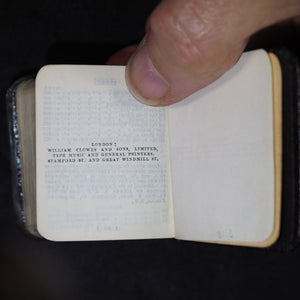 LONDON:
WILLIAM CLOWES AND SONS, LIMITED,
TYPE MUSIC AND GENERAL PRINTERS,
STAMFORD ST. AND GREAT WINDMILL ST,